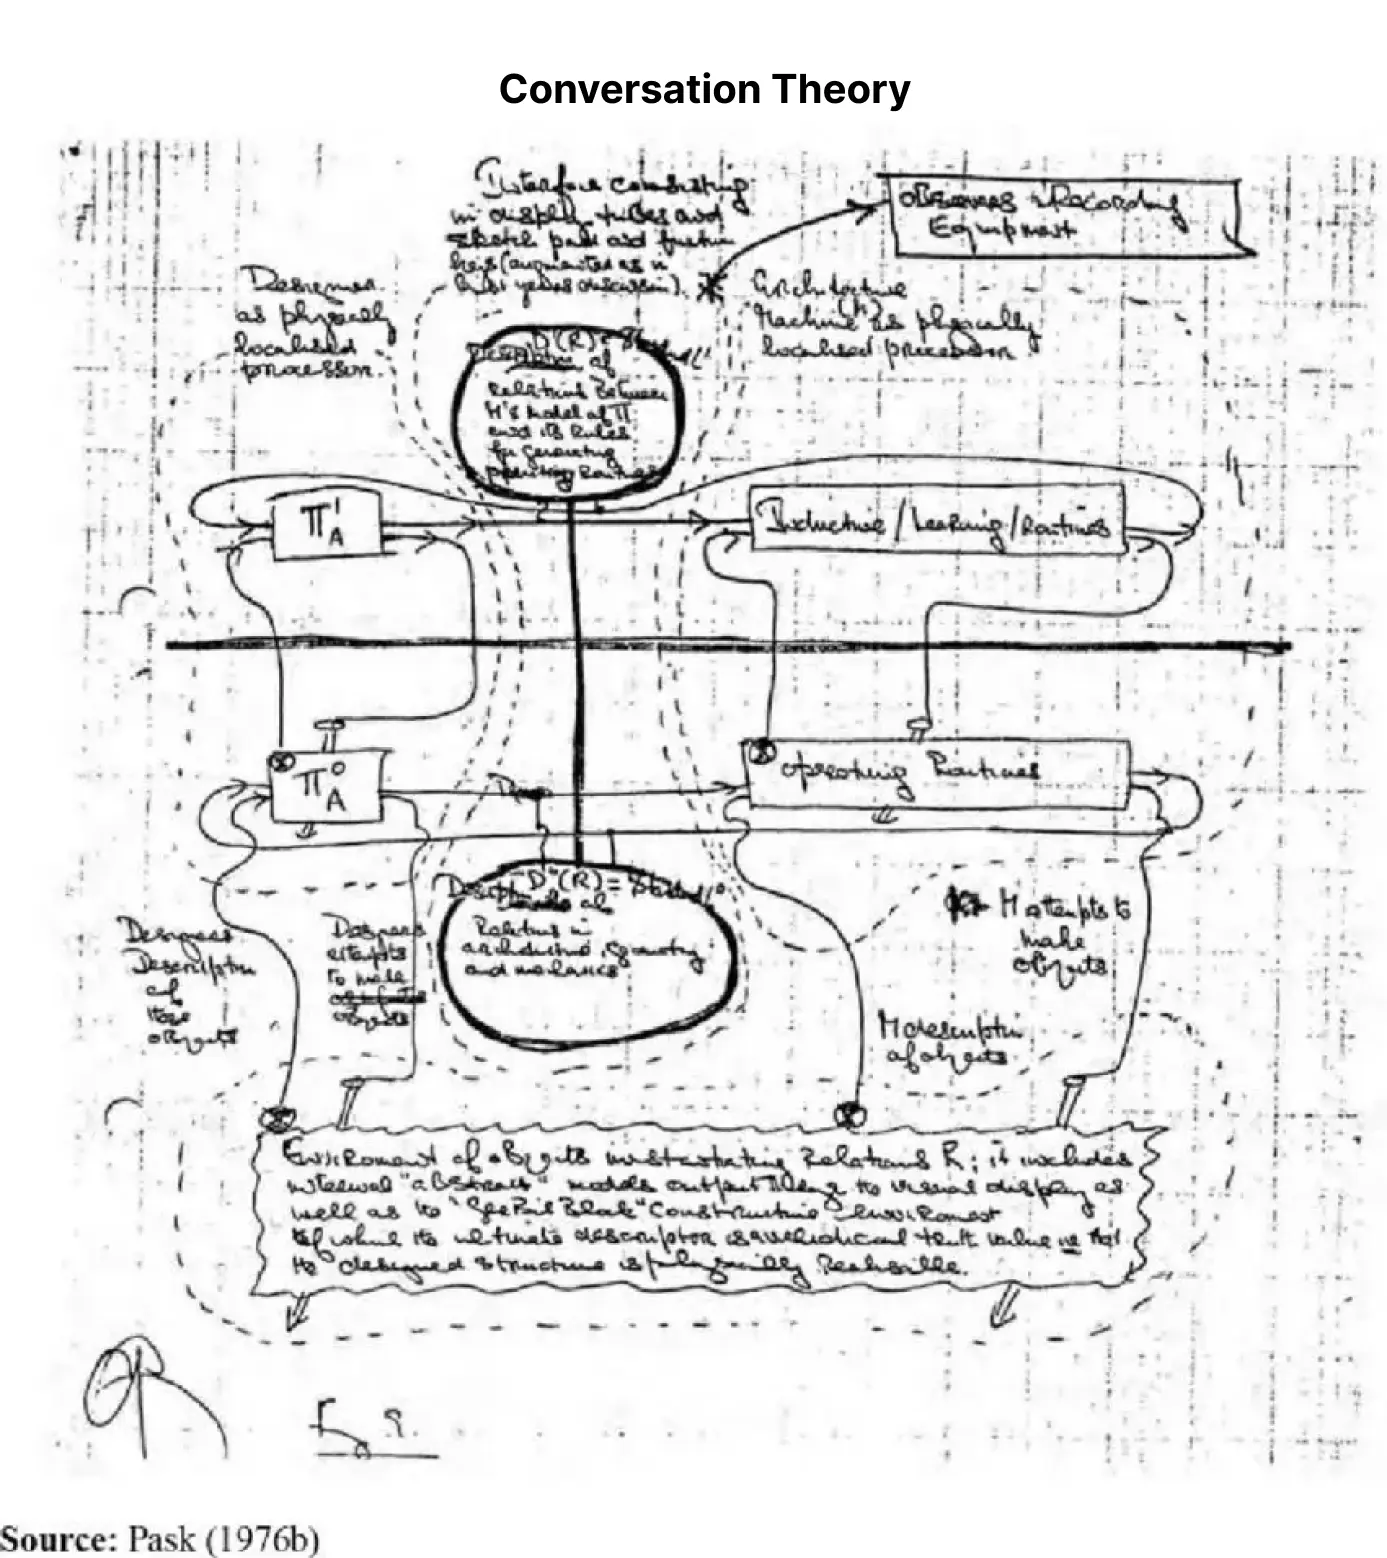 Conversation Theory
Interface consisting
in display tubes and
sketch pad and
keys (augmented as in
last years discussion).
Observers & Recording
Equipment
Designer
as physically
localised
processor.
Architecture
Machine (M) as physically
localised processor
D'(R) =
Description of
relations between
M's model of Π
and its rules
for generating
operating Routines
Π¹A
Inductive / Learning / Routines
Π⁰A
Operating Routines
D⁰(R) =
of
Relations in
architecture, geometry
and mechanics
Designers
Description
of
these
objects
Designers
attempts
to make
objects
M attempts to
make
objects
M description
of objects
Enviroment of objects instantiating Relations R; it includes
internal "abstract" models output to visual display as
well as to Construction enviroment
of which the ultimate descriptor is
the designed structure is physically Realisable.
Fig 9.
Source: Pask (1976b)